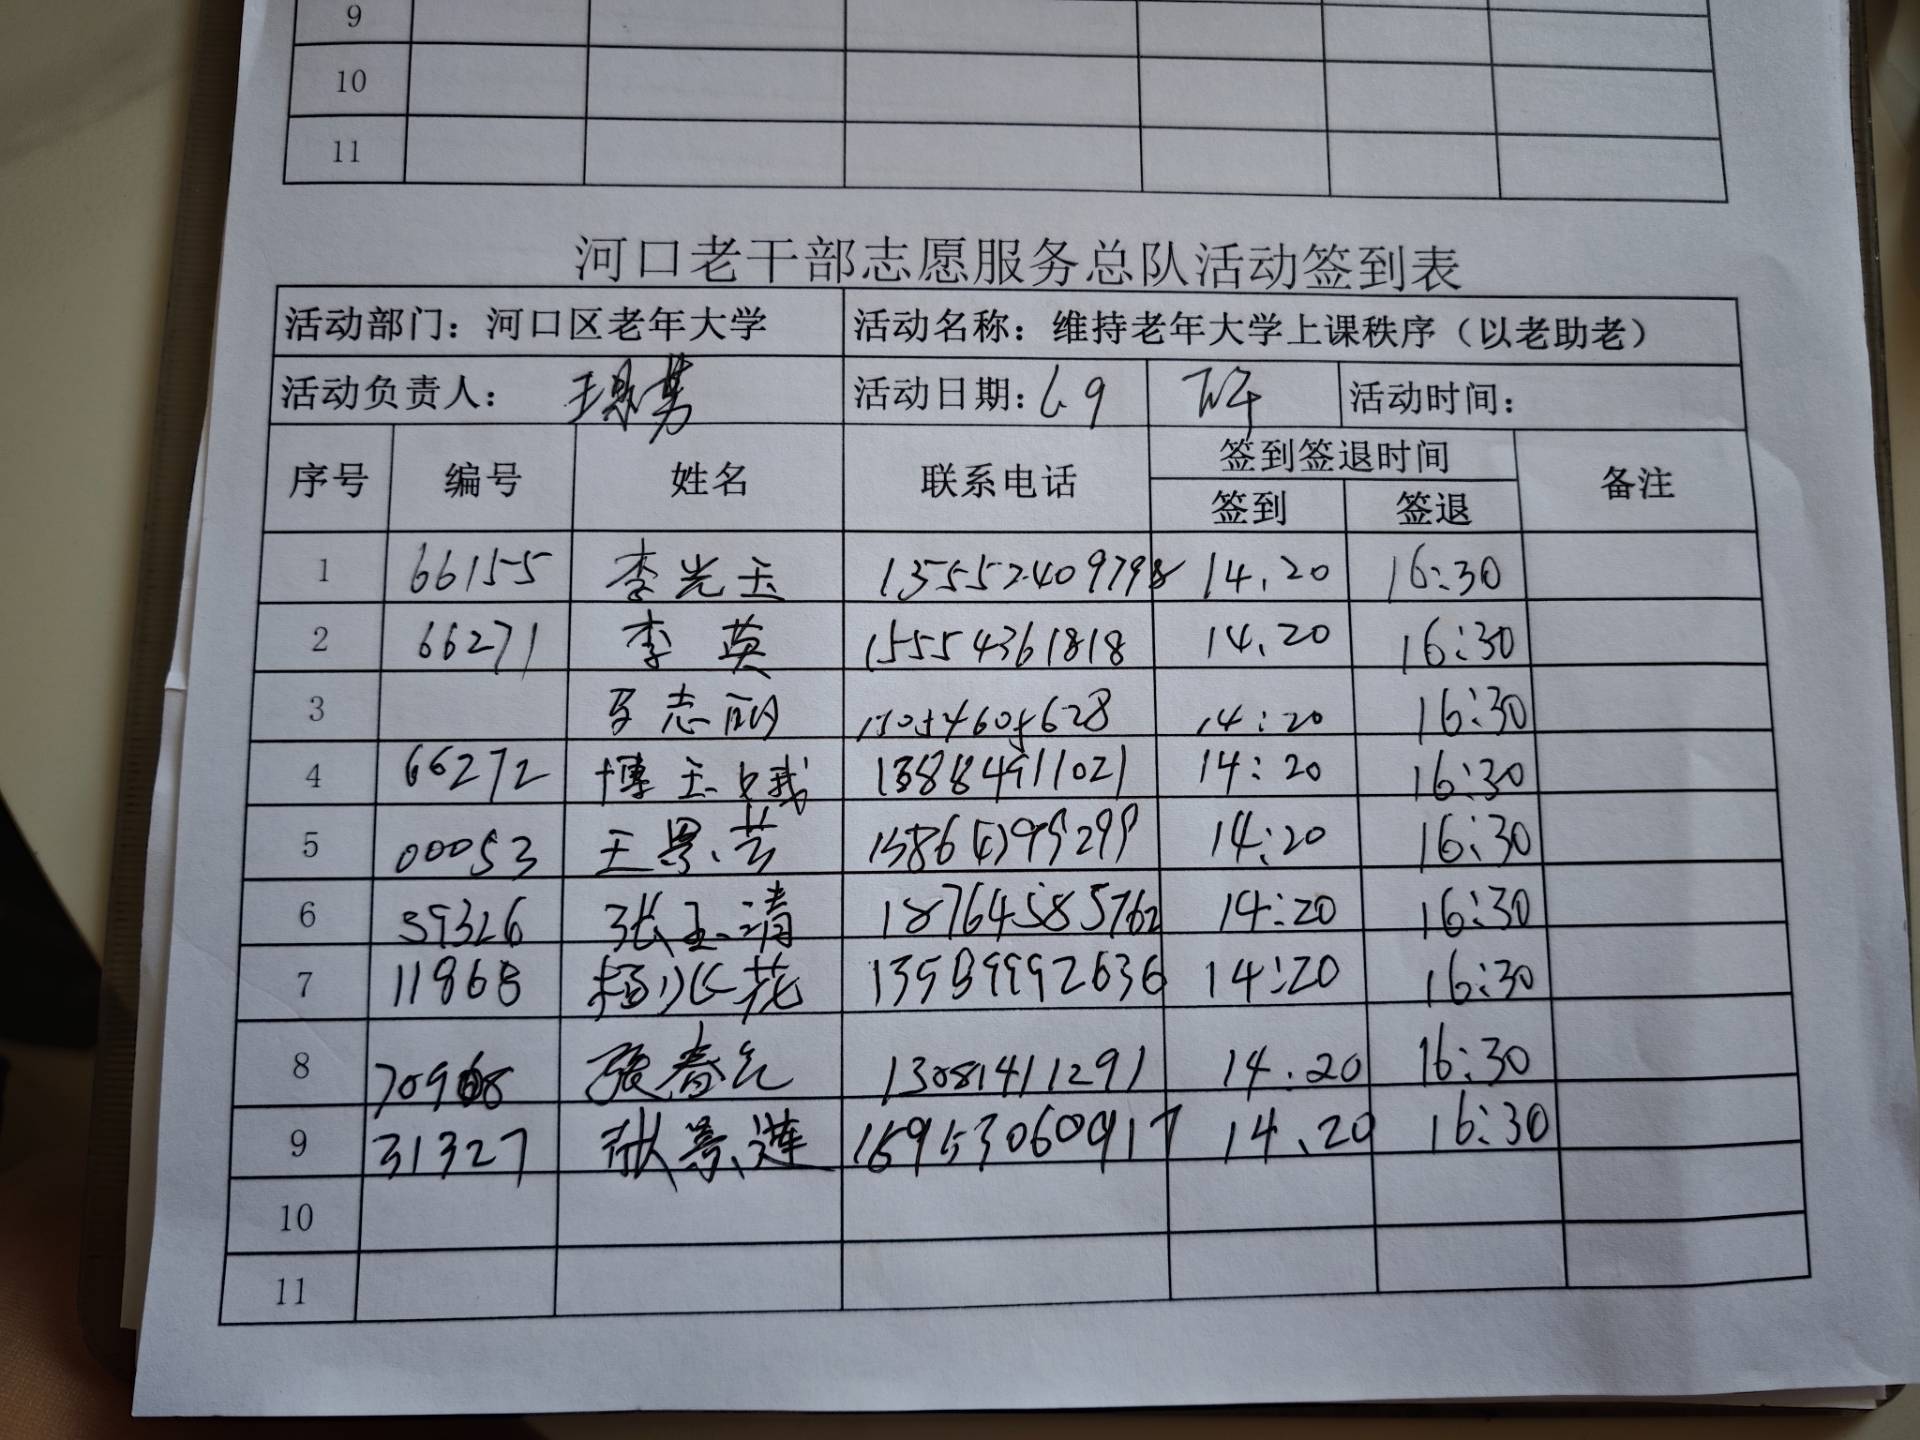 9
10
11
河口老干部志愿服务总队活动签到表
活动部门：河口区老年大学 活动名称：维持老年大学上课秩序（以老助老）
活动负责人： 活动日期：6.9 下午 活动时间：
序号 编号 姓名 联系电话 签到签退时间 备注
签到 签退
1 66155 李光玉 14.20 16:30
2 66271 李英 15554361818 14.20 16:30
3 志丽 14:20 16:30
4 66272 13884911021 14:20 16:30
5 00053 王景芸 14:20 16:30
6 39326 张玉清 18764585762 14:20 16:30
7 11868 杨水花 13589992636 14:20 16:30
8 张春元 13081411291 14:20 16:30
9 31327 张景莲 14.20 16:30
10
11